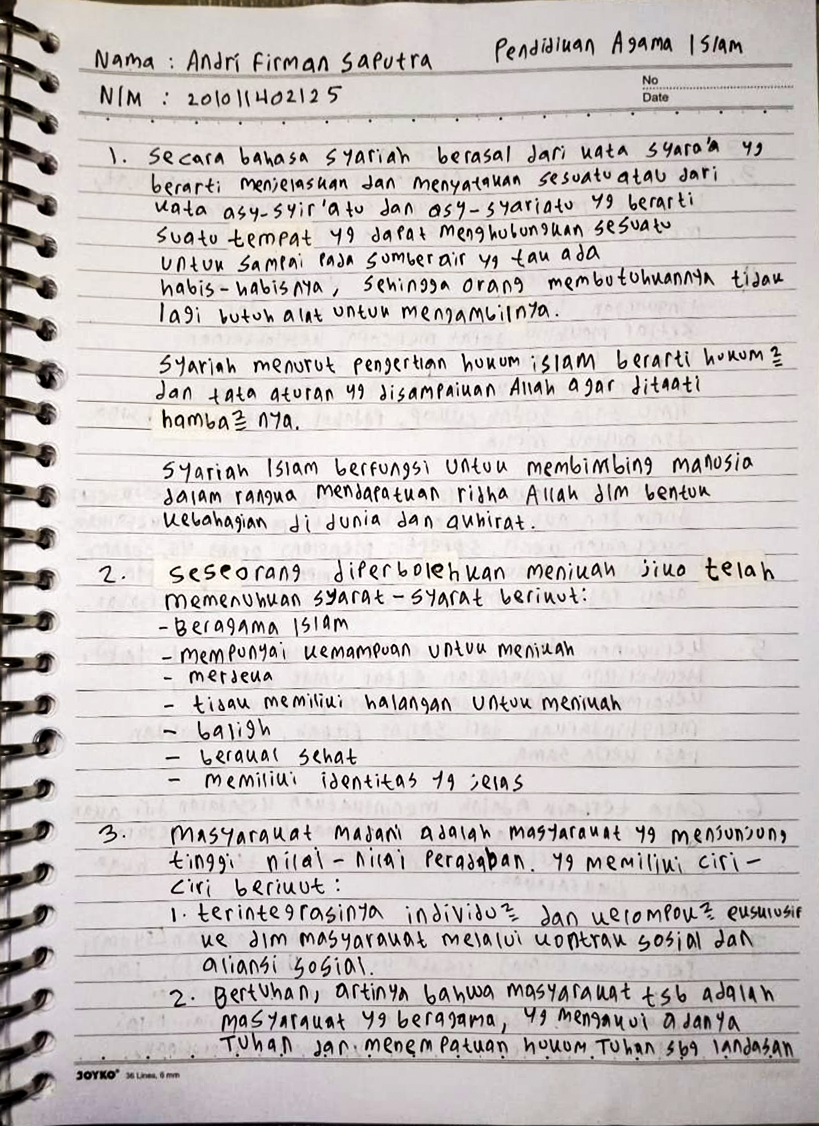 Nama : Andri Firman Saputra
Pendidikan Agama Islam
NIM : 201011402125
No
Date
1. Secara bahasa syariah berasal dari kata syara'a yg
berarti menjelaskan dan menyatakan sesuatu atau dari
kata asy-syir'atu dan asy-syariatu yg berarti
suatu tempat yg dapat menghubungkan sesuatu
untuk sampai pada sumber air yg tak ada
habis-habisnya, sehingga orang membutuhkannya tidak
lagi butuh alat untuk mengambilnya.
Syariah menurut pengertian hukum islam berarti hukum2
dan tata aturan yg disampaikan Allah agar ditaati
hamba2 nya.
Syariah Islam berfungsi untuk membimbing manusia
dalam rangka mendapatkan ridha Allah dlm bentuk
kebahagian di dunia dan akhirat.
2. Seseorang diperbolehkan menikah jika telah
memenuhkan syarat-syarat berikut:
- Beragama Islam
- mempunyai kemampuan untuk menikah
- merdeka
- tidak memiliki halangan untuk menikah
- baligh
- berakal sehat
- memiliki identitas yg jelas
3. Masyarakat madani adalah masyarakat yg menjunjung
tinggi nilai-nilai peradaban. yg memiliki ciri-
ciri berikut:
1. terintegrasinya individu2 dan kelompok2 eksklusif
ke dlm masyarakat melalui kontrak sosial dan
aliansi sosial.
2. Bertuhan, artinya bahwa masyarakat tsb adalah
masyarakat yg beragama, yg mengakui adanya
Tuhan dan menempatkan hukum Tuhan sbg landasan
JOYKO 36 Lines, 6 mm